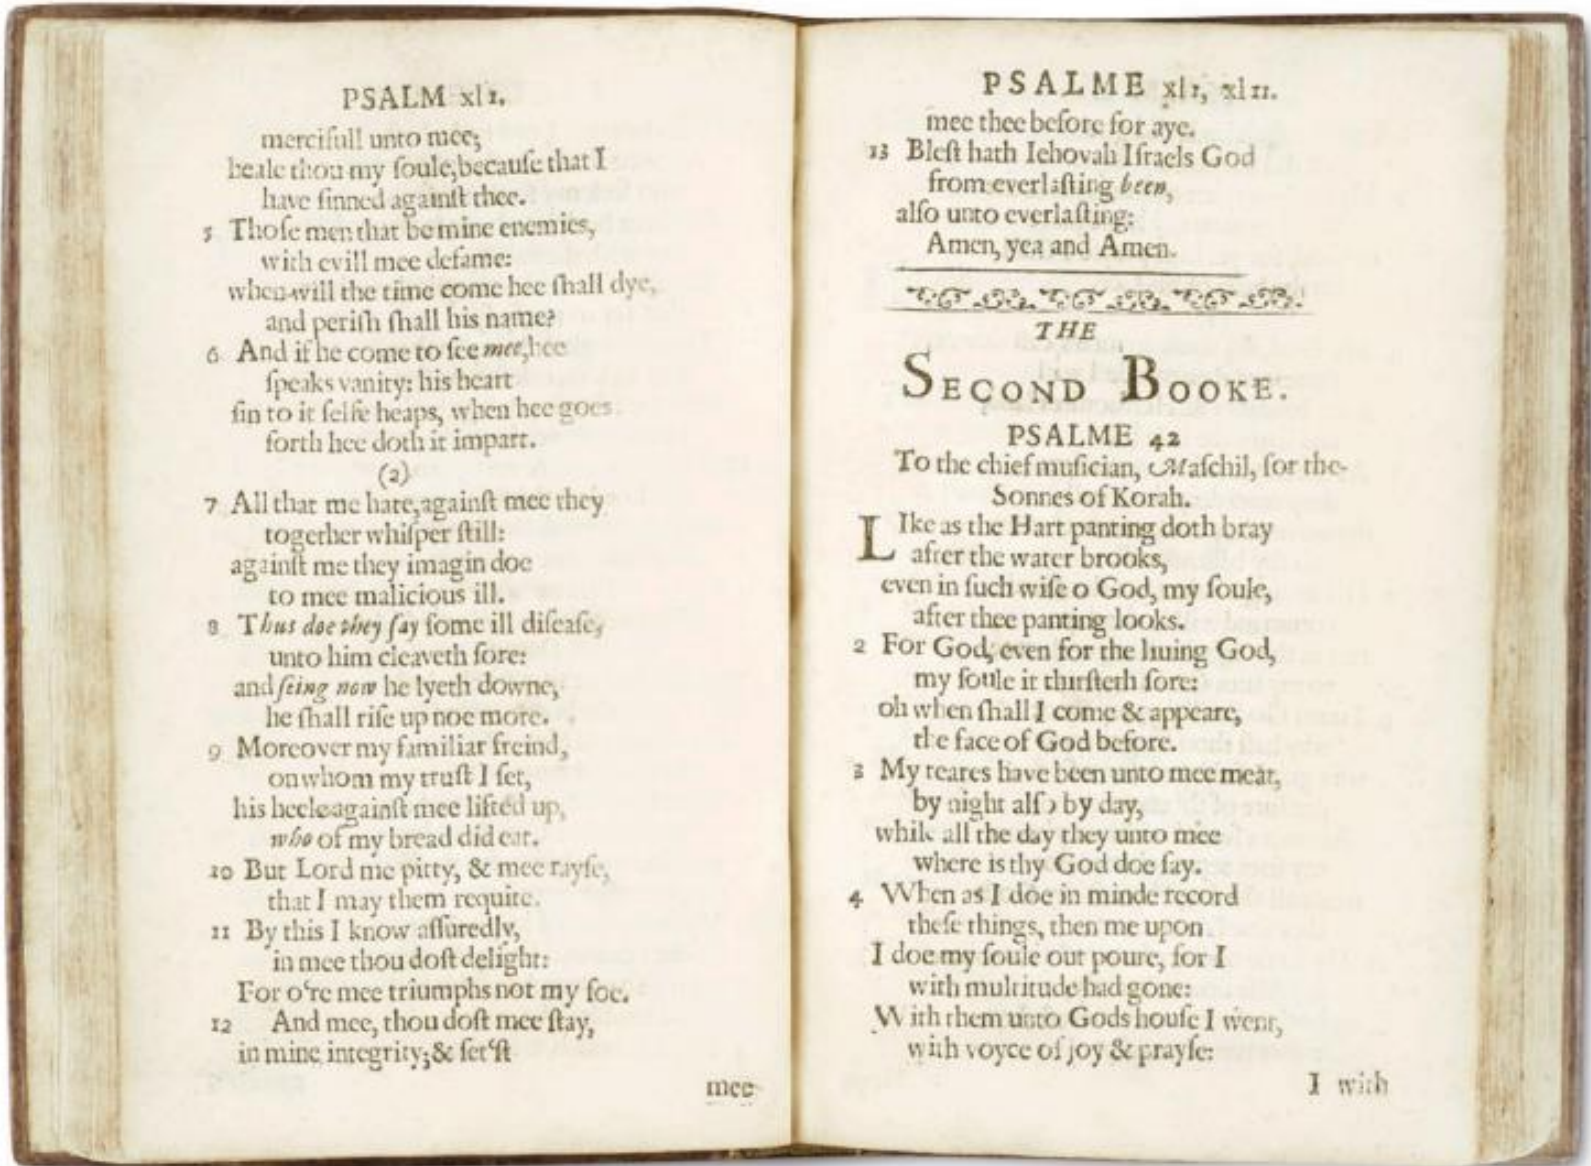 PSALM xlI.
mercifull unto mee;
heale thou my ſoule, becauſe that I
have ſinned againſt thee.
5 Thoſe men that be mine enemies,
with evill mee defame:
when will the time come hee ſhall dye,
and periſh ſhall his name?
6 And if he come to ſee mee, hee
ſpeaks vanity: his heart
ſin to it ſelfe heaps, when hee goes
forth hee doth it impart.
(2)
7 All that me hate, againſt mee they
together whiſper ſtill:
againſt me they imagin doe
to mee malicious ill.
8 Thus doe they ſay ſome ill diſeaſe,
unto him cleaveth ſore:
and ſeing now he lyeth downe,
he ſhall riſe up noe more.
9 Moreover my familiar freind,
on whom my truſt I ſet,
his heele againſt mee lifted up,
who of my bread did eat.
10 But Lord me pitty, & mee rayſe,
that I may them requite.
11 By this I know aſſuredly,
in mee thou doſt delight:
For o're mee triumphs not my foe.
12 And mee, thou doſt mee ſtay,
in mine integrity; & ſet'ſt
mee
PSALME xlI, xlII.
mee thee before for aye.
13 Bleſt hath Iehovah Iſraels God
from everlaſting been,
alſo unto everlaſting:
Amen, yea and Amen.
THE
SECOND BOOKE.
PSALME 42
To the chief muſician, Maſchil, for the
Sonnes of Korah.
LIke as the Hart panting doth bray
after the water brooks,
even in ſuch wiſe o God, my ſoule,
after thee panting looks.
2 For God, even for the liuing God,
my ſoule it thirſteth ſore:
oh when ſhall I come & appeare,
the face of God before.
3 My teares have been unto mee meat,
by night alſo by day,
while all the day they unto mee
where is thy God doe ſay.
4 When as I doe in minde record
theſe things, then me upon
I doe my ſoule out poure, for I
with multitude had gone:
With them unto Gods houſe I went,
with voyce of joy & prayſe:
I with